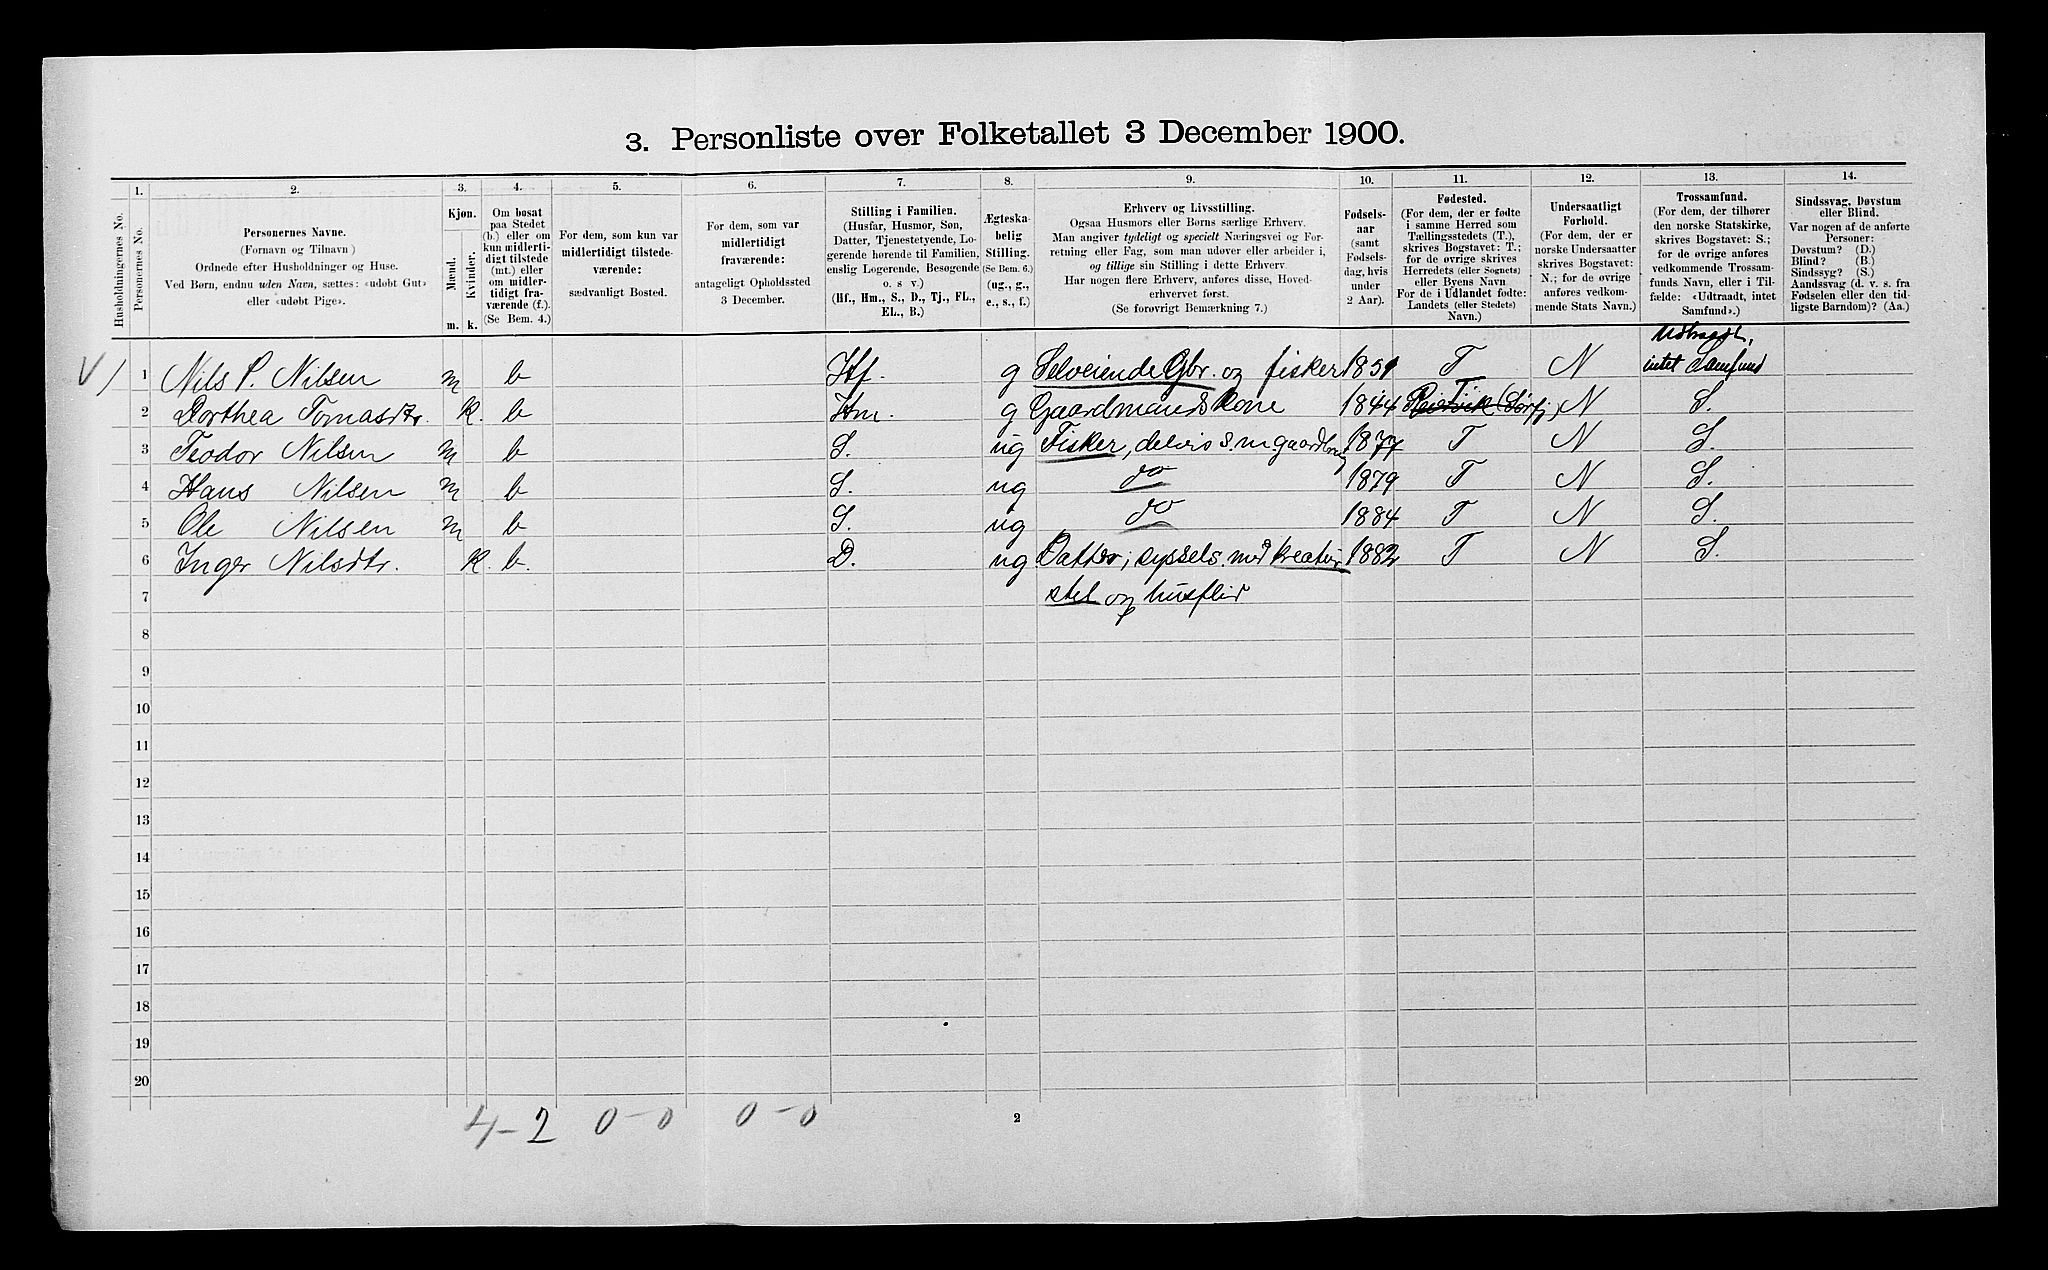 3. Personliste over Folketallet 3 December 1900.
1. 2. 3. 4. 5. 6. 7. 8. 9. 10. 11. 12. 13. 14.
Husholdningernes No.
Personernes No.
Personernes Navne.
(Fornavn og Tilnavn)
Ordnede efter Husholdninger og Huse.
Ved Børn, endnu uden Navn, sættes: «udøbt Gut»
eller «udøbt Pige».
Kjøn.
Mænd.
Kvinder.
m. k.
Om bosat
paa Stedet
(b.) eller om
kun midlerti-
digt tilstede
(mt.) eller
om midler-
tidigt fra-
værende (f.).
(Se Bem. 4.)
For dem, som kun var
midlertidigt tilstede-
værende:
sædvanligt Bosted.
For dem, som var
midlertidigt
fraværende:
antageligt Opholdssted
3 December.
Stilling i Familien.
(Husfar, Husmor, Søn,
Datter, Tjenestetyende, Lo-
gerende hørende til Familien,
enslig Logerende, Besøgende
o. s v.)
(Hf., Hm., S., D., Tj., FL.,
EL., B.)
Ægteska-
belig
Stilling.
(Se Bem. 6.)
(ug., g.,
e., s., f.)
Erhverv og Livsstilling.
Ogsaa Husmors eller Børns særlige Erhverv.
Man angiver tydeligt og specielt Næringsvei og For-
retning eller Fag, som man udøver eller arbeider i,
og tillige sin Stilling i dette Erhverv.
Har nogen flere Erhverv, anføres disse, Hoved-
erhvervet først.
(Se forøvrigt Bemærkning 7.)
Fødsels-
aar
(samt
Fødsels-
dag, hvis
under
2 Aar).
Fødested.
(For dem, der er fødte
i samme Herred som
Tællingsstedets (T.),
skrives Bogstavet: T.;
for de øvrige skrives
Herredets (eller Sognets)
eller Byens Navn
For de i Udlandet fødte:
Landets (eller Stedets)
Navn.)
Undersaatligt
Forhold.
(For dem, der er
norske Undersaatter
skrives Bogstavet:
N.; for de øvrige
anføres vedkom-
mende Stats Navn.)
Trossamfund.
(For dem, der tilhører
den norske Statskirke,
skrives Bogstavet: S.;
for de øvrige anføres
vedkommende Trossam-
funds Navn, eller i Til-
fælde: «Udtraadt, intet
Samfund».)
Sindssvag, Døvstum
eller Blind.
Var nogen af de anførte
Personer:
Døvstum? (D.)
Blind? (B.)
Sindssyg? (S.)
Aandssvag (d. v. s. fra
Fødselen eller den tid-
ligste Barndom)? (Aa.)
Udtraadt,
1 Nils P. Nilsen m b Hf. g Selveiende Gbr. og fisker 1851 T N intet Samfund
2 Dorthea Tomasdtr. k. b Hm. g Gaardmands Kone 1844 T N S.
3 Teodor Nilsen m b S. ug Fisker, delvis s. m gaardbrug 1877 T N S.
4 Hans Nilsen m b S. ug do 1879 T N S.
5 Ole Nilsen m b S. ug do 1884 T N S.
6 Inger Nilsdtr. k. b. D. ug Datter, syssels. med kreatur 1882 T N S.
7 stel og husflid
8
9
10
11
12
13
14
15
16
17
18
19
20
4-2 0-0 0-0 2